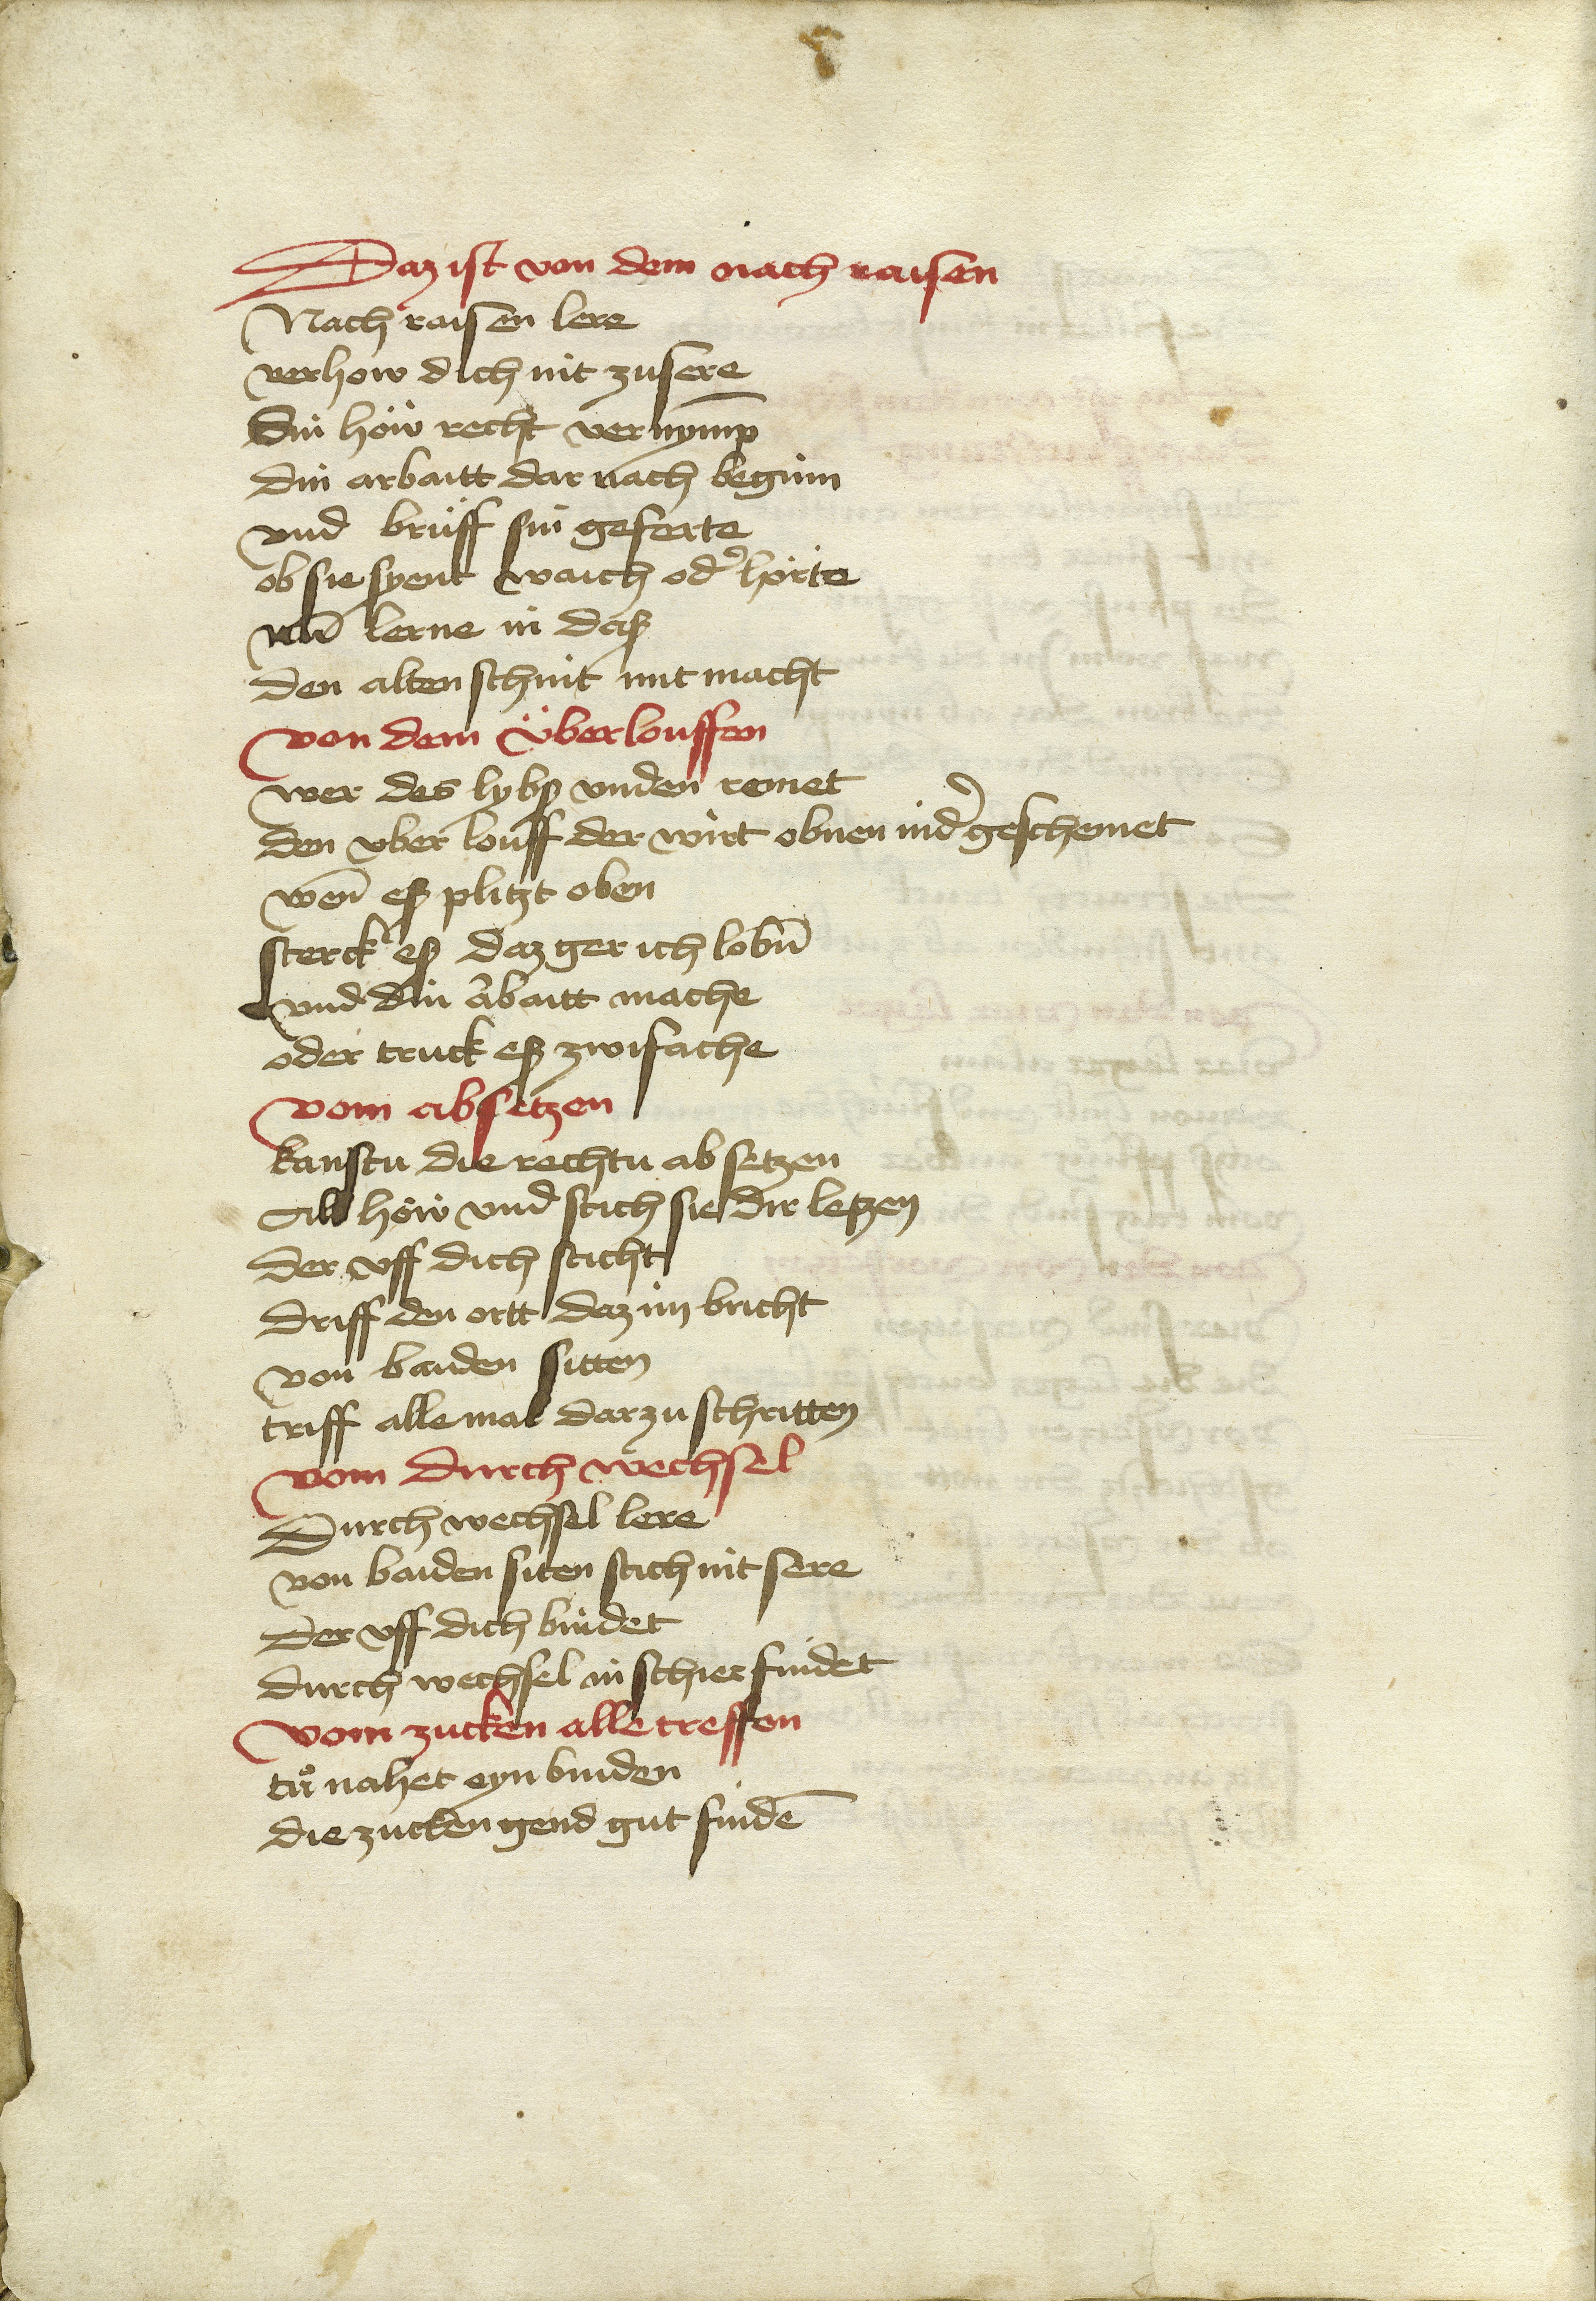 Daz ist von dem nach raisen
Nach raisen lere
verhow dich nit zu sere
Sin höw recht vernÿmp
din arbaitt dar nach beginn
vnd brüff sin geferte
ob sie syent waich od' hörte
nū lerne in daß
den alten schnit mit macht
von dem Überlouffen
wer des lybß vnden remet
den vber louff der wirt obnen ind' geschemet
wen̄ eß plitzt oben
sterck eß daz ger ich lobn̄
vnd din ābaitt mache
oder truck eß zwifache
vom absetzen
kanstu die rechtn ab setzen
All höw vnd stich sie dir letzen
der vff dich sticht
driff den ortt daz im bricht
von banden sitten
triff alle mal dar zu schritten
vom durch wechsel
Durch wechsel lere
von baiden siten stich nit sere
Der vff dich bindet
durch wechsel in schier findet
vom zucken alle treffen
trͦ nahet eyn binden
die zucken gend gut findē